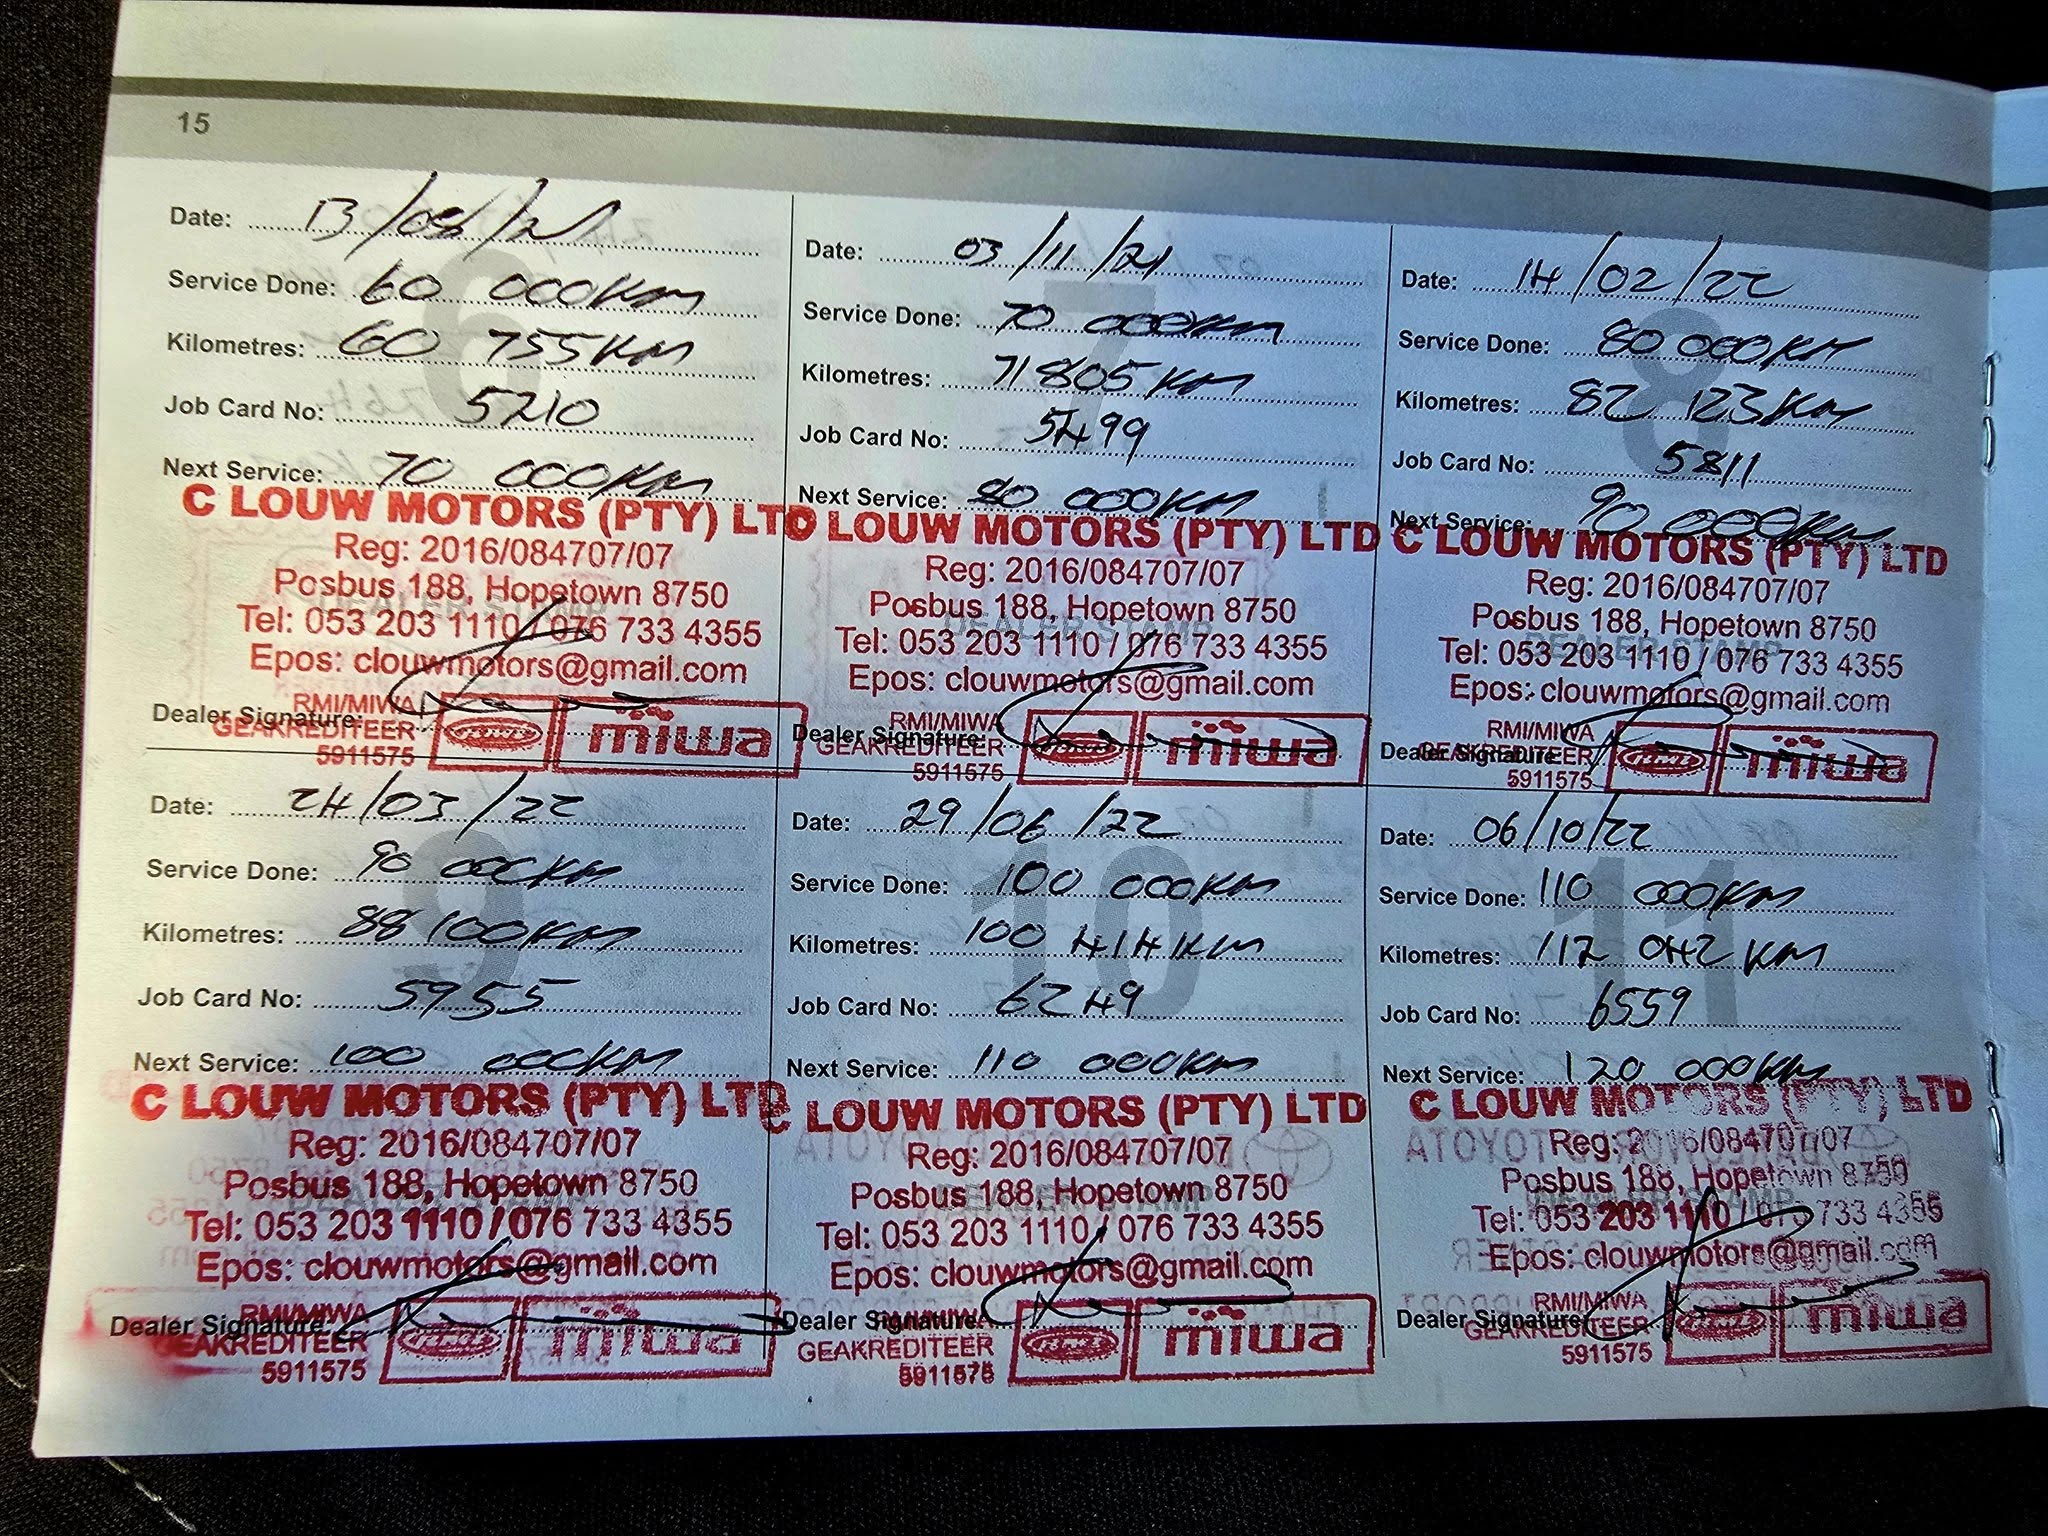 15
Date: 13/08/21
Service Done: 60 000KM
Kilometres: 60 755KM
Job Card No: 5210
Next Service: 70 000KM
C LOUW MOTORS (PTY) LTD
Reg: 2016/084707/07
Posbus 188, Hopetown 8750
Tel: 053 203 1110 / 076 733 4355
Epos: clouwmotors@gmail.com
DEALER STAMP
Dealer Signature:
RMI/MIWA
GEAKREDITEER
5911575
miwa
Date: 03/11/21
Service Done: 70 000KM
Kilometres: 71 805KM
Job Card No: 5499
Next Service: 80 000KM
C LOUW MOTORS (PTY) LTD
Reg: 2016/084707/07
Posbus 188, Hopetown 8750
Tel: 053 203 1110 / 076 733 4355
Epos: clouwmotors@gmail.com
DEALER STAMP
Dealer Signature:
RMI/MIWA
GEAKREDITEER
5911575
miwa
8
Date: 14/02/22
Service Done: 80 000KM
Kilometres: 82 123KM
Job Card No: 5811
Next Service: 90 000KM
C LOUW MOTORS (PTY) LTD
Reg: 2016/084707/07
Posbus 188, Hopetown 8750
Tel: 053 203 1110 / 076 733 4355
Epos: clouwmotors@gmail.com
DEALER STAMP
Dealer Signature:
RMI/MIWA
GEAKREDITEER
5911575
miwa
9
Date: 24/03/22
Service Done: 90 000KM
Kilometres: 88 100KM
Job Card No: 5955
Next Service: 100 000KM
C LOUW MOTORS (PTY) LTD
Reg: 2016/084707/07
Posbus 188, Hopetown 8750
Tel: 053 203 1110 / 076 733 4355
Epos: clouwmotors@gmail.com
DEALER STAMP
Dealer Signature:
RMI/MIWA
GEAKREDITEER
5911575
miwa
10
Date: 29/06/22
Service Done: 100 000KM
Kilometres: 100 414KM
Job Card No: 6249
Next Service: 110 000KM
C LOUW MOTORS (PTY) LTD
Reg: 2016/084707/07
Posbus 188, Hopetown 8750
Tel: 053 203 1110 / 076 733 4355
Epos: clouwmotors@gmail.com
DEALER STAMP
Dealer Signature:
RMI/MIWA
GEAKREDITEER
5911575
miwa
11
Date: 06/10/22
Service Done: 110 000KM
Kilometres: 112 042 KM
Job Card No: 6559
Next Service: 120 000KM
C LOUW MOTORS (PTY) LTD
Reg: 2016/084707/07
Posbus 188, Hopetown 8750
Tel: 053 203 1110 / 076 733 4355
Epos: clouwmotors@gmail.com
DEALER STAMP
Dealer Signature:
RMI/MIWA
GEAKREDITEER
5911575
miwa